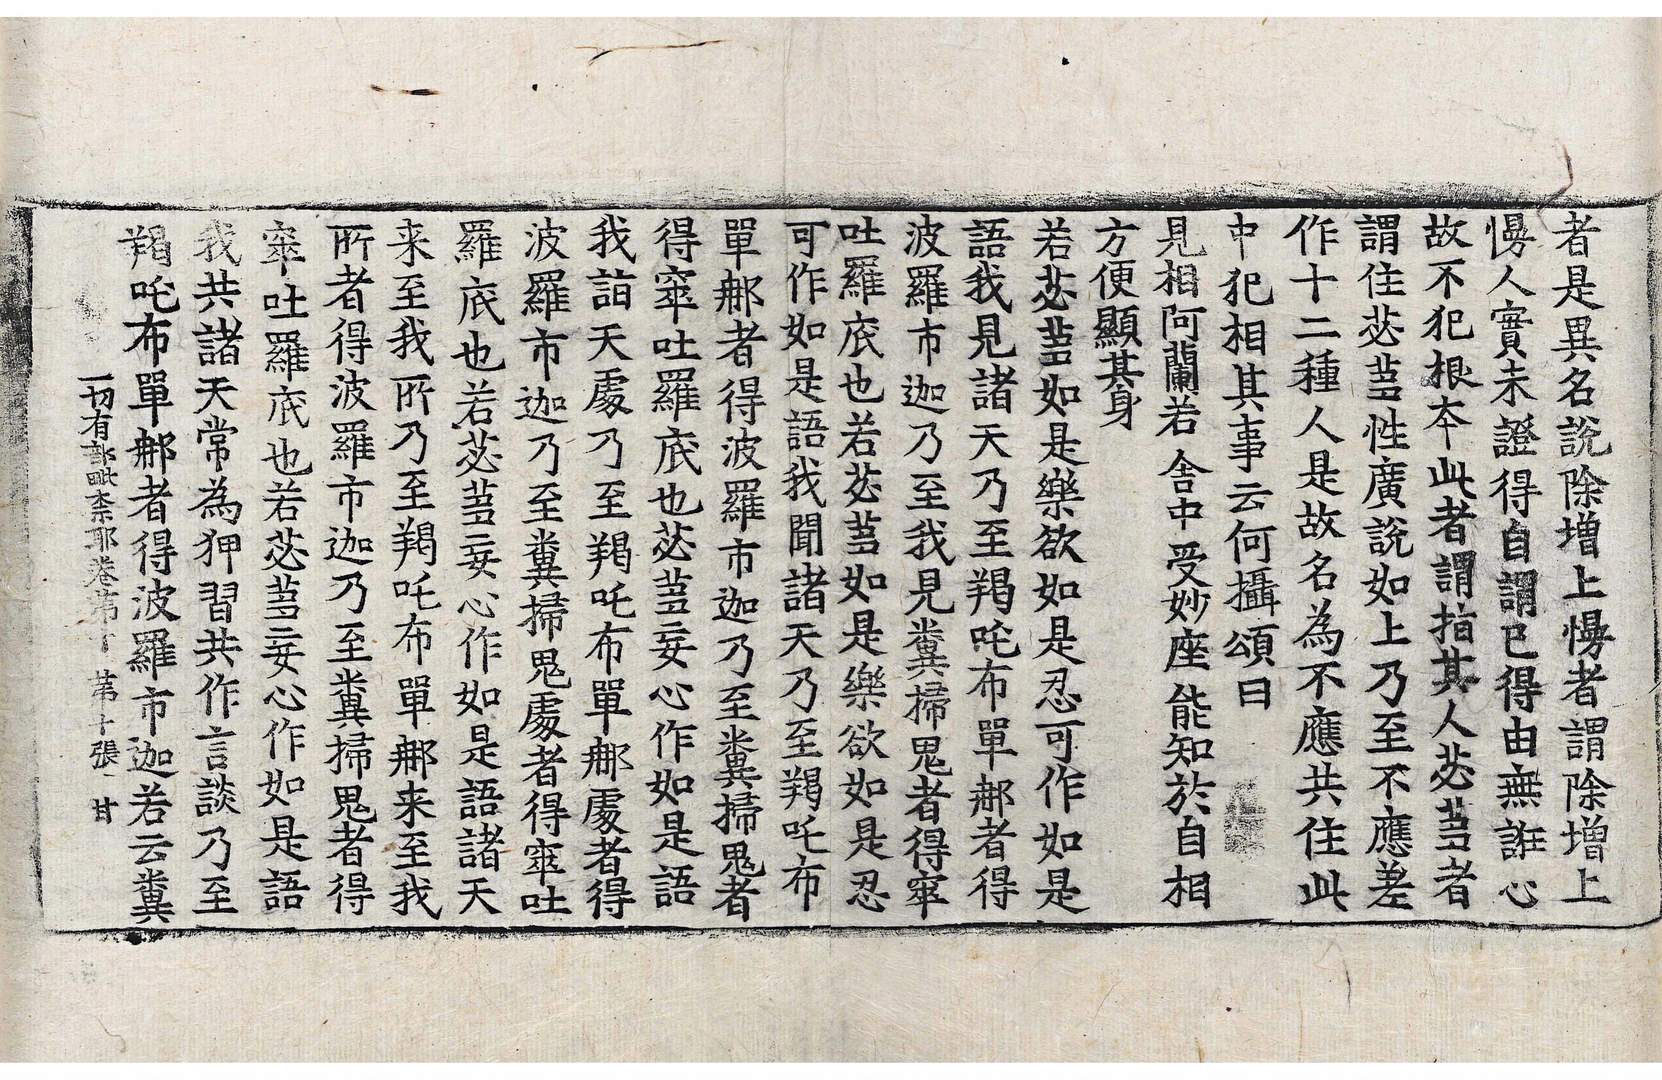 者是異名說除增上慢者謂除增上
慢人實未證得自謂已得由無誑心
故不犯根本此者謂指其人苾芻者
謂住苾芻性廣說如上乃至不應差
作十二種人是故名為不應共住此
中犯相其事云何攝頌曰
見相阿蘭若 舍中受妙座 能知於自相
方便顯其身
若苾芻如是樂欲如是忍可作如是
語我見諸天乃至羯吒布單那者得
波羅市迦乃至我見糞掃鬼者得窣
吐羅底也若苾芻如是樂欲如是忍
可作如是語我聞諸天乃至羯吒布
單那者得波羅市迦乃至糞掃鬼者
得窣吐羅底也苾芻妄心作如是語
我詣天處乃至羯吒布單那處者得
波羅市迦乃至糞掃鬼處者得窣吐
羅底也若苾芻妄心作如是語諸天
来至我所乃至羯吒布單那来至我
所者得波羅市迦乃至糞掃鬼者得
窣吐羅底也若苾芻妄心作如是語
我共諸天常為狎習共作言談乃至
羯吒布單那者得波羅市迦若云糞
一切有部毗柰耶卷第十 第十張 甘